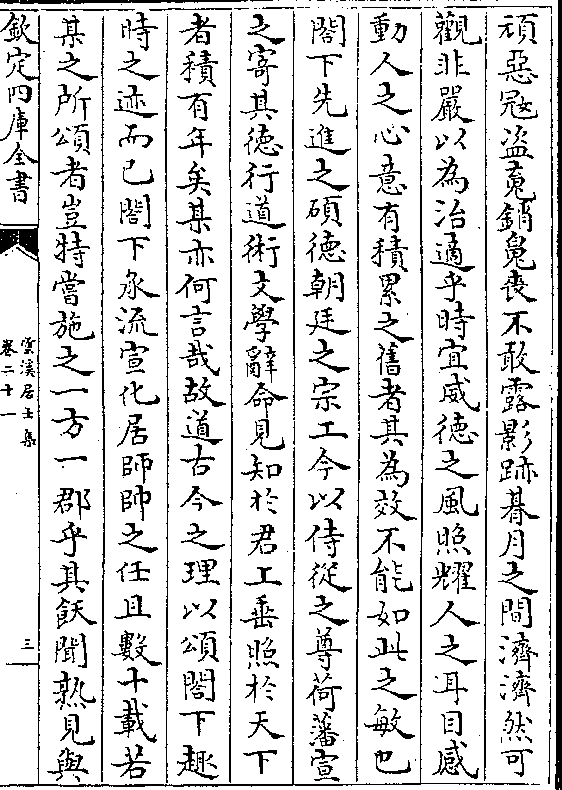 頑惡冦盜䰟銷鬼喪不敢露影跡朞月之間濟濟然可
觀非嚴以為治適乎時宜威德之風照耀人之耳目感
動人之心意有積累之舊者其為效不能如此之敏也
閤下先進之碩德朝廷之宗工今以侍從之尊荷藩宣
之寄其德行道術文學辭命見知於君上垂照於天下
者積有年矣某亦何言哉故道古今之理以頌閤下趣
時之迹而已閤下承流宣化居師帥之任且數十載若
某之所頌者豈特嘗施之一方一郡乎其飫聞熟見與
欽定四庫全書
雲溪居士集
卷二十一
三